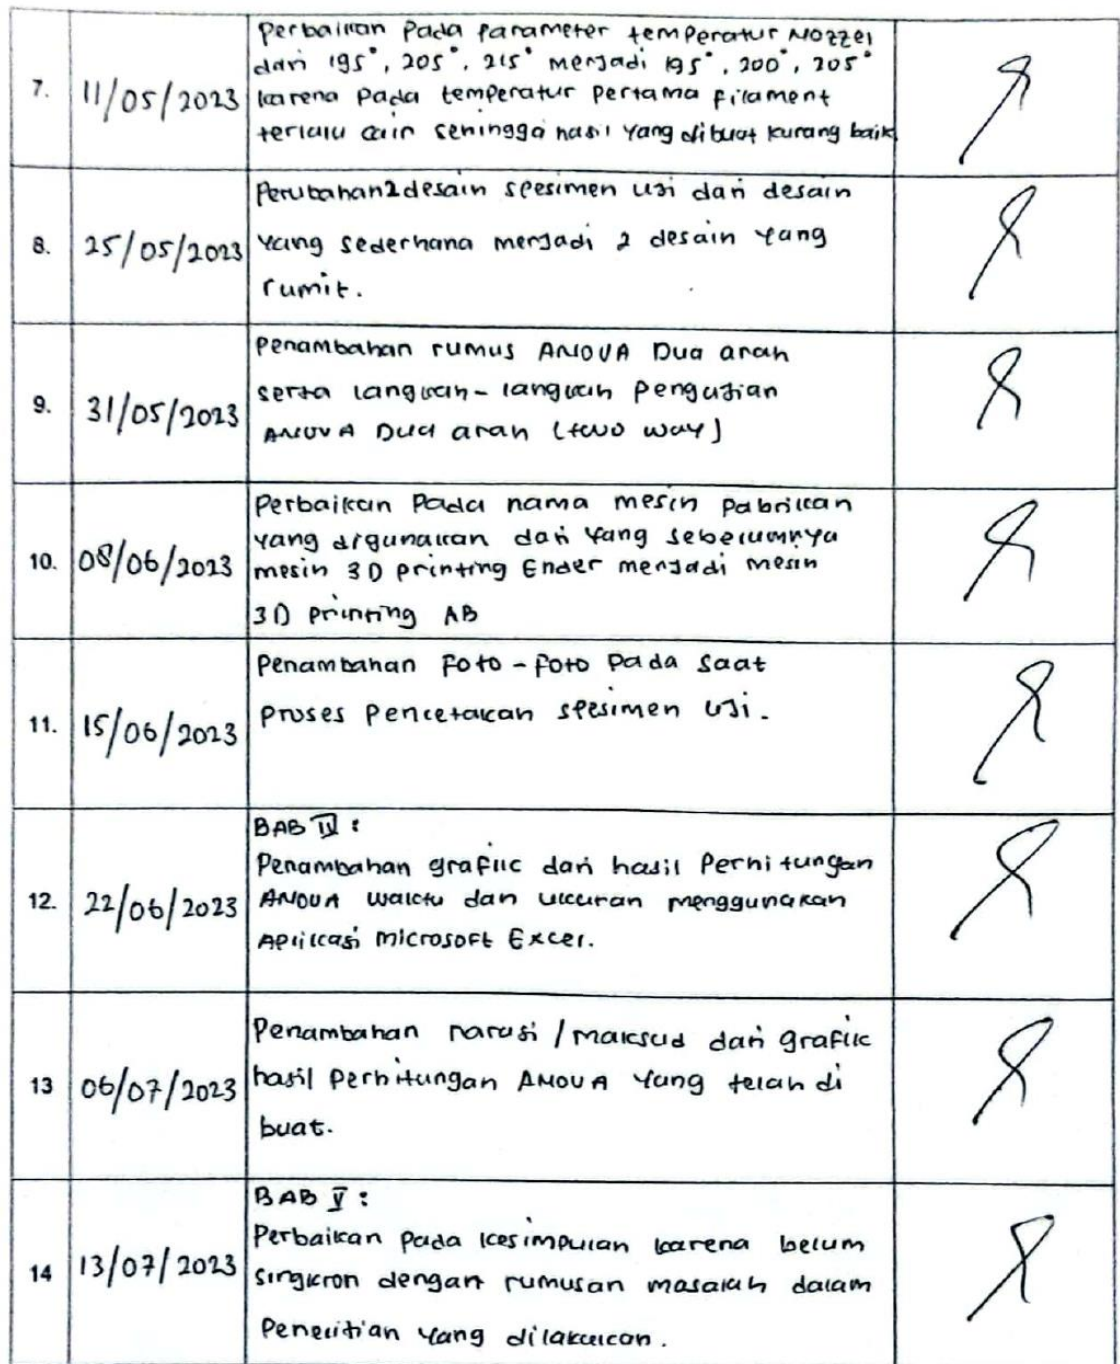 7. 11/05/2023
Perbaikan Pada Parameter temperatur Nozzel
dari 195°, 205°, 215° menjadi 195°, 200°, 205°
karena pada temperatur pertama filament
terlalu cair sehingga hasil yang dibuat kurang baik
8. 25/05/2023
Perubahan 2 desain spesimen uji dari desain
yang sederhana menjadi 2 desain yang
rumit.
9. 31/05/2023
Penambahan rumus ANOVA Dua arah
serta langkah-langkah pengujian
ANOVA Dua arah (two way)
10. 08/06/2023
Perbaikan Pada nama mesin pabrikan
yang digunakan dari yang sebelumnya
mesin 3D printing Ender menjadi mesin
3D printing AB
11. 15/06/2023
Penambahan Foto-Foto pada saat
proses pencetakan spesimen uji.
12. 22/06/2023
BAB IV :
Penambahan grafik dari hasil Perhitungan
ANOVA waktu dan ukuran menggunakan
Aplikasi Microsoft Excel.
13 06/07/2023
Penambahan narasi / maksud dari grafik
hasil Perhitungan ANOVA yang telah di
buat.
14 13/07/2023
BAB V :
Perbaikan pada kesimpulan karena belum
singkron dengan rumusan masalah dalam
Penelitian yang dilakukan.